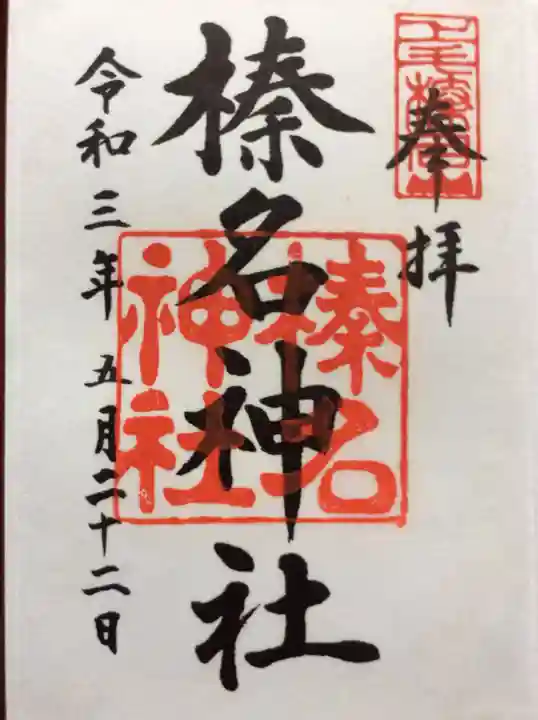 奉拝
榛名神社
榛名
神社
令和三年五月二十二日